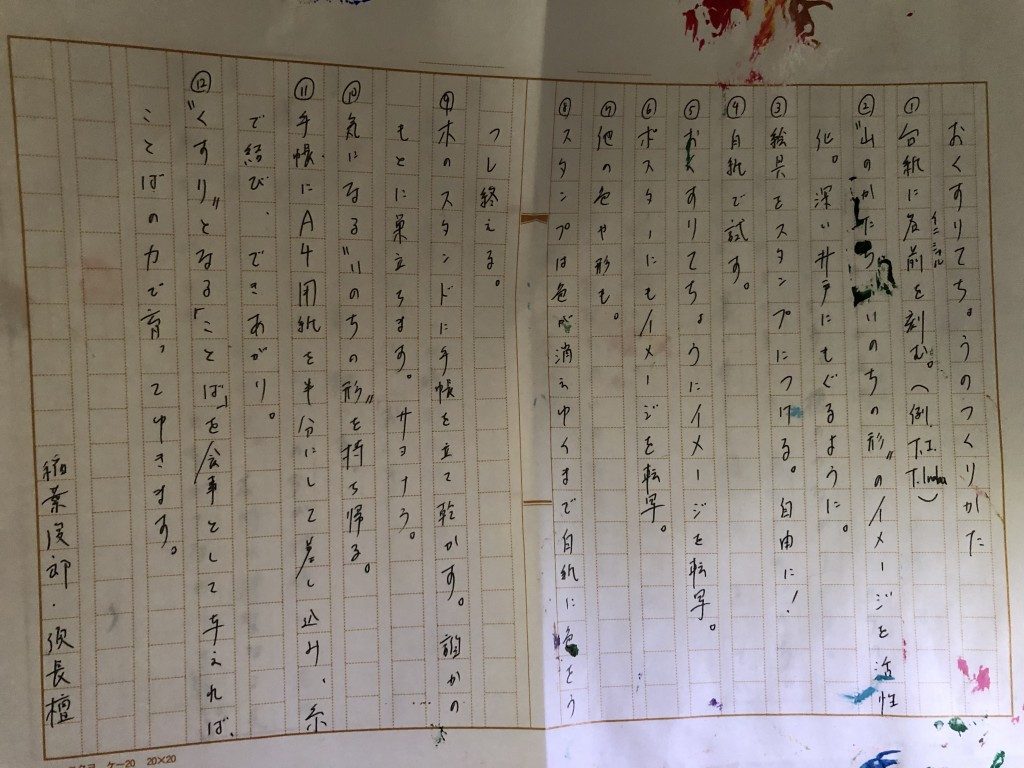 おくすりてちょうのつくりかた
①台紙に名前を刻む。(例. T.I. T.Inaba)
イニシャル
②"山のかたち いのちの形"のイメージを活性
化。深い井戸にもぐるように。
③絵具をスタンプにつける。自由に!
④白紙で試す。
⑤おくすりてちょうにイメージを転写。
⑥ポスターにもイメージを転写。
⑦他の色や形も。
⑧スタンプは色が消えゆくまで白紙に色をう
つし終える。
⑨木のスタンドに手帳を立て乾かす。誰かの
もとに巣立ちます。サヨナラ。
⑩気になる"いのちの形"を持ち帰る。
⑪手帳にA4用紙を半分にして差し込み、糸
で結び、できあがり。
⑫"くすり"となる「ことば」を食事として与えれば、
ことばの力で育ってゆきます。
稲葉俊郎・須長檀
ケー20 20×20